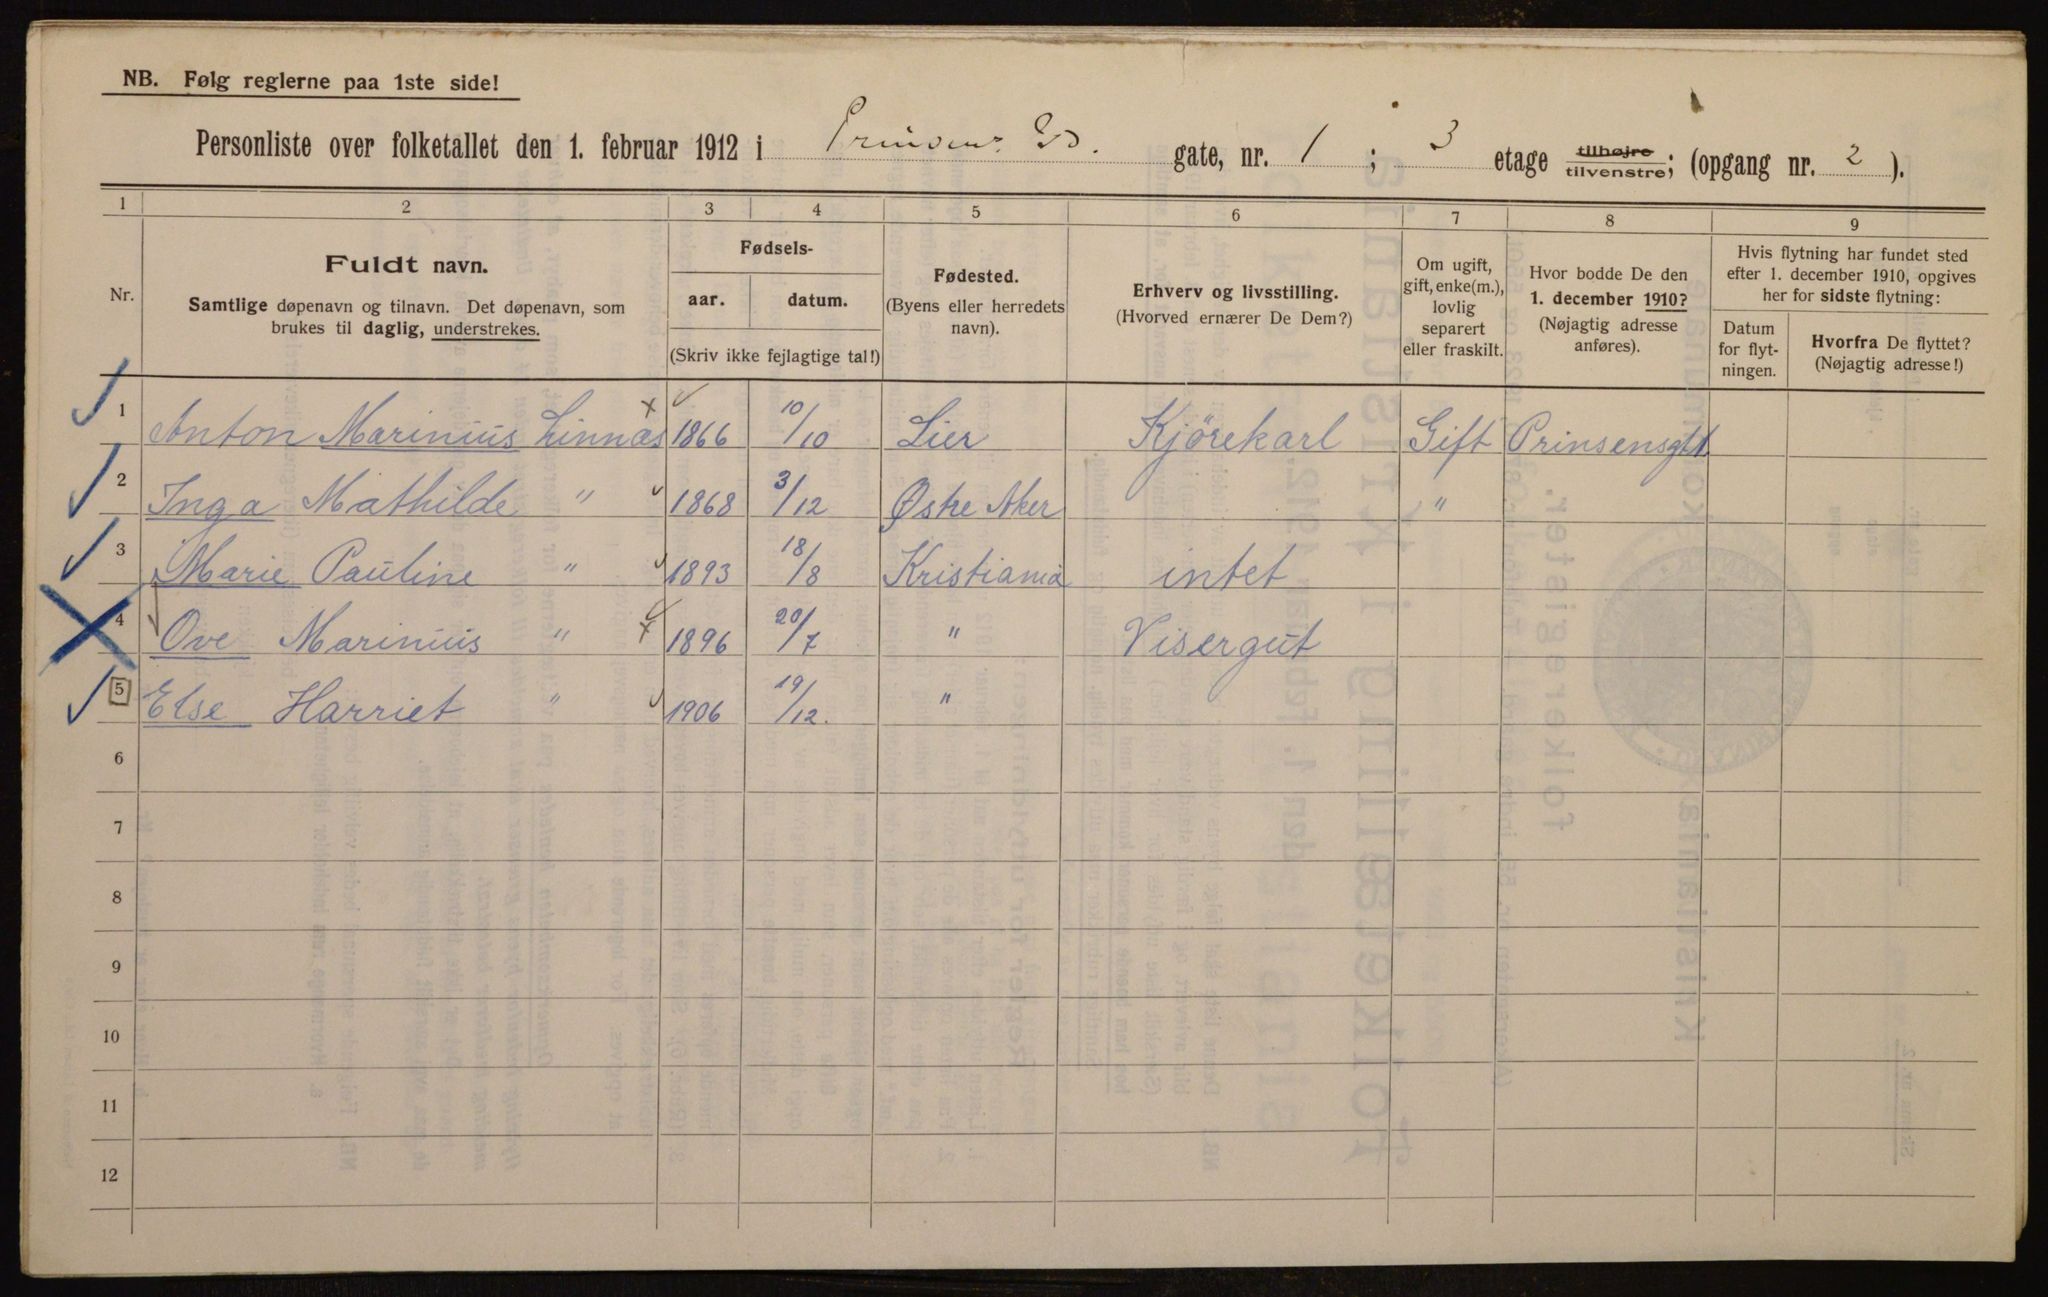 NB. Følg reglerne paa 1ste side!
Personliste over folketallet den 1. februar 1912 i Prinsens gate, nr. 1; 3 etage tilhøjre tilvenstre; (opgang nr. 2).
1 2 3 4 5 6 7 8 9
Nr.
Fuldt navn.
Samtlige døpenavn og tilnavn. Det døpenavn, som
brukes til daglig, understrekes.
Fødsels-
aar. datum.
(Skriv ikke fejlagtige tal!)
Fødested.
(Byens eller herredets
navn).
Erhverv og livsstilling.
(Hvorved ernærer De Dem?)
Om ugift,
gift, enke(m.),
lovlig
separert
eller fraskilt.
Hvor bodde De den
1. december 1910?
(Nøjagtig adresse
anføres).
Hvis flytning har fundet sted
efter 1. december 1910, opgives
her for sidste flytning:
Datum
for flyt-
ningen.
Hvorfra De flyttet?
(Nøjagtig adresse!)
1 Anton Marinius Linnæs 1866 10/10 Lier Kjörekarl Gift Prinsensgt 1
2 Inga Mathilde " 1868 3/12 Østre Aker "
3 Marie Pauline " 1893 18/8 Kristiania intet
4 Ove Marinius " 1896 20/7 " Visergut
5 Else Harriet " 1906 19/12. "
6
7
8
9
10
11
12